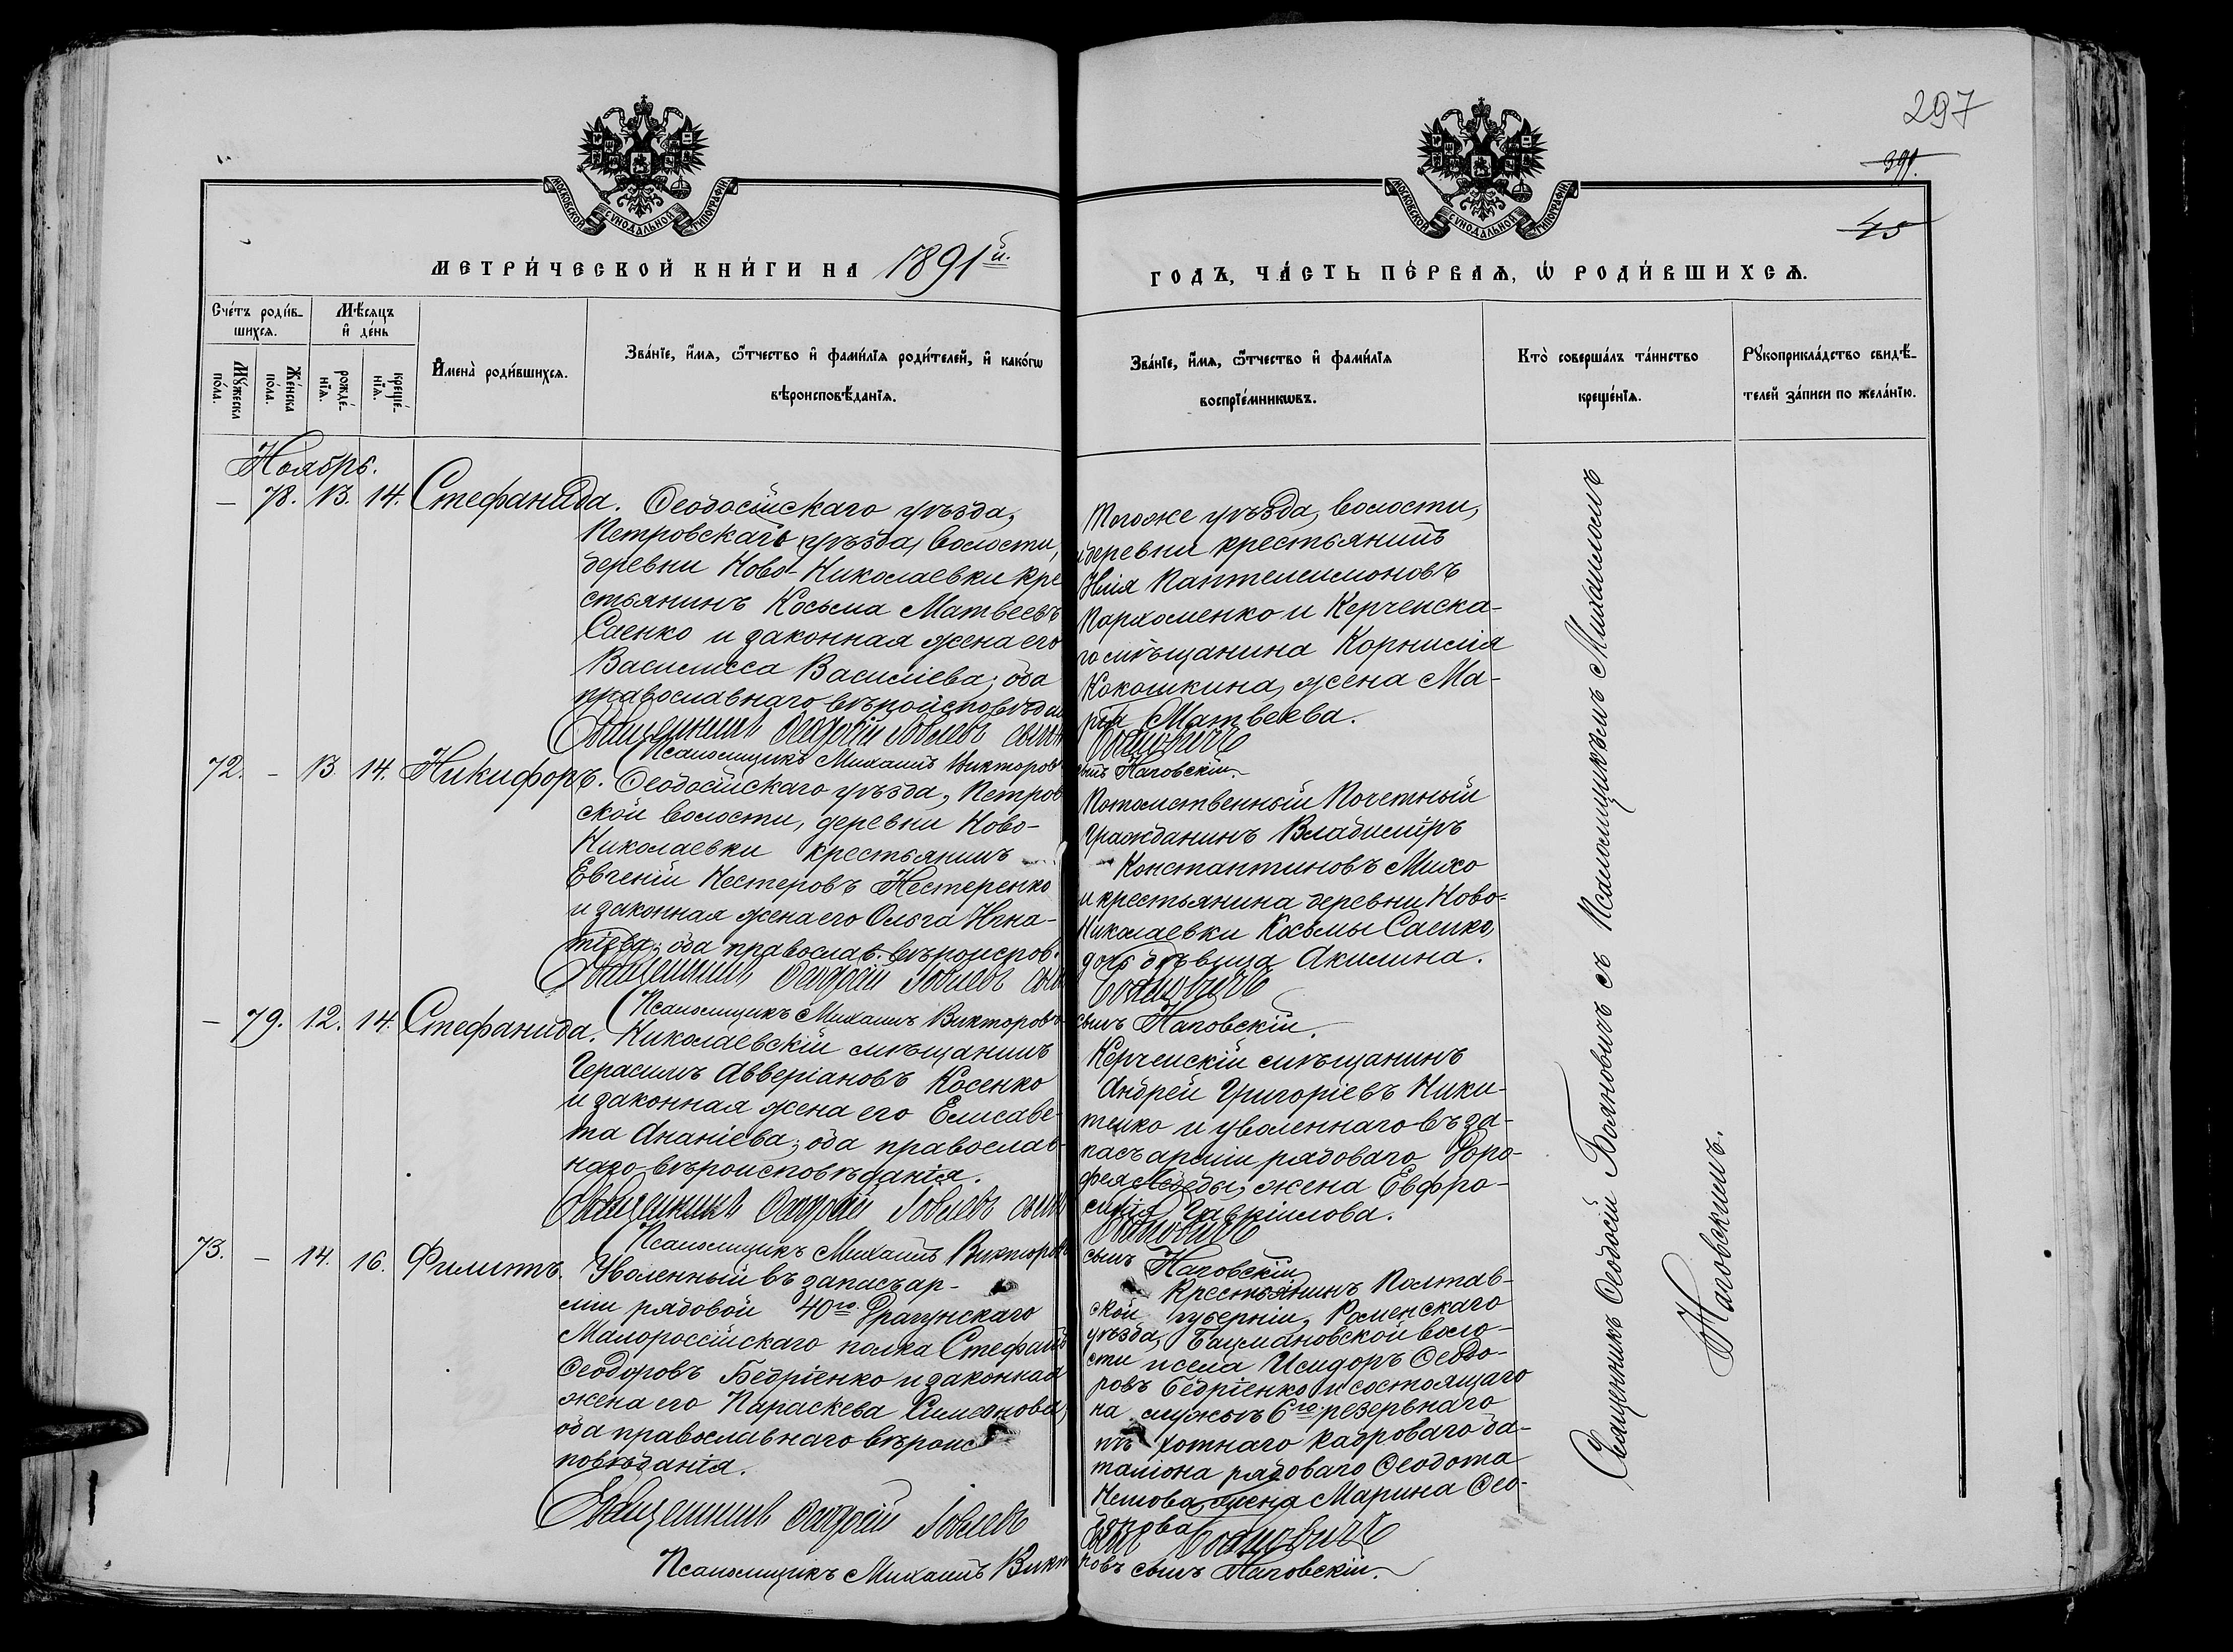 297
391.
45
МОСКОВСКОЙ СѴНОДАЛЬНОЙ ТИПОГРАФІИ
МОСКОВСКОЙ СѴНОДАЛЬНОЙ ТИПОГРАФІИ
МЕТРИ́ЧЕСКОЙ КНИ́ГИ НА 1891й.
ГОДЪ, ЧА́СТЬ ПЕ́РВАѦ, Ѡ РОДИ́ВШИХСѦ.
Сче́тъ роди́в-
шихсѧ.
Мѣ́сѧцъ
и҆ де́нь
Мꙋ́жеска
по́ла.
Же́нска
по́ла.
рожде́-
нїѧ.
креще́-
нїѧ.
И҆мена̀ роди́вшихсѧ.
Зва́нїе, и҆́мѧ, ѻ҆́тчество и҆ фами́лїѧ роди́телей, и҆ како́гѡ
вѣроисповѣ́данїѧ.
Зва́нїе, и҆́мѧ, ѻ҆́тчество и҆ фами́лїѧ
воспрїе́мникѡвъ.
Кто̀ соверша́лъ та́инство
креще́нїѧ.
Рꙋкоприкла́дство свидѣ́-
телей за́писи по жела́нїю.
Ноябрь.
— 78. 13. 14. Стефанида. Ѳеодосійскаго уѣзда,
Петровскаго уѣзда, волости,
деревни Ново-Николаевки кре
стьянинъ Косьма Матвеевъ
Саенко и законная жена его
Василисса Василіева; оба
православнаго вѣроисповѣдан
Священникъ Ѳеодосій Іовлевъ сынъ
Псаломщикъ Михаилъ Викторовъ
Тогоже уѣзда, волости,
деревни крестьянинъ
Илія Пантелеимоновъ
Пархоменко и Керченска-
го мѣщанина Корнилія
Кокошкина, жена Ма-
рѳа Матвеева.
Бояновичъ
сынъ Наговскій.
72. — 13. 14. Никифоръ. Ѳеодосійскаго уѣзда, Петров
ской волости, деревни Ново-
Николаевки крестьянинъ
Евгеній Нестеровъ Нестеренко
и законная жена его Ольга Игна-
тіева; оба православ. вѣроиспов.
Священникъ Ѳеодосій Іовлевъ сынъ
Псаломщикъ Михаилъ Викторовъ
Потомственный Почетный
Гражданинъ Владиміръ
Константиновъ Михо
и крестьянина деревни Ново-
Николаевки Косьмы Саенко,
дочь дѣвица Акилина.
Бояновичъ
сынъ Наговскій.
— 79. 12. 14. Стефанида. Николаевскій мѣщанинъ
Герасимъ Авверіановъ Косенко
и законная жена его Елисаве-
та Ананіева; оба православ-
наго вѣроисповѣданія.
Священникъ Ѳеодосій Іовлевъ сынъ
Псаломщикъ Михаилъ Викторовъ
Керченскій мѣщанинъ
Андрей Григоріевъ Ники-
тенко и уволеннаго въ за-
пасъ арміи рядоваго Доро-
фея жена Евфро-
синія Гавріилова.
Бояновичъ
сынъ Наговскій
73. — 14. 16. Филиппъ. Уволенный въ запасъ ар-
міи рядовой 40го Драгунскаго
Малороссійскаго полка Стефанъ
Ѳеодоровъ Бедріенко и законная
жена его Параскева Симеонова;
оба православнаго вѣроис
повѣданія.
Священникъ Ѳеодосій Іовлевъ
Псаломщикъ Михаилъ Викто
Крестьянинъ Полтав-
ской губерніи, Роменскаго
уѣзда, Бацмановской воло-
сти и села Исидоръ Ѳеодо-
ровъ Бедріенко и состоящаго
на службѣ 6го резервнаго
пѣ хотнаго кадроваго ба-
таліона рядоваго Ѳеодота
жена Марина Ѳео-
дорова
сынъ Бояновичъ
ровъ сынъ Наговскій.
Священникъ Ѳеодосій Бояновичъ съ Псаломщикомъ Михаиломъ
Наговскимъ.